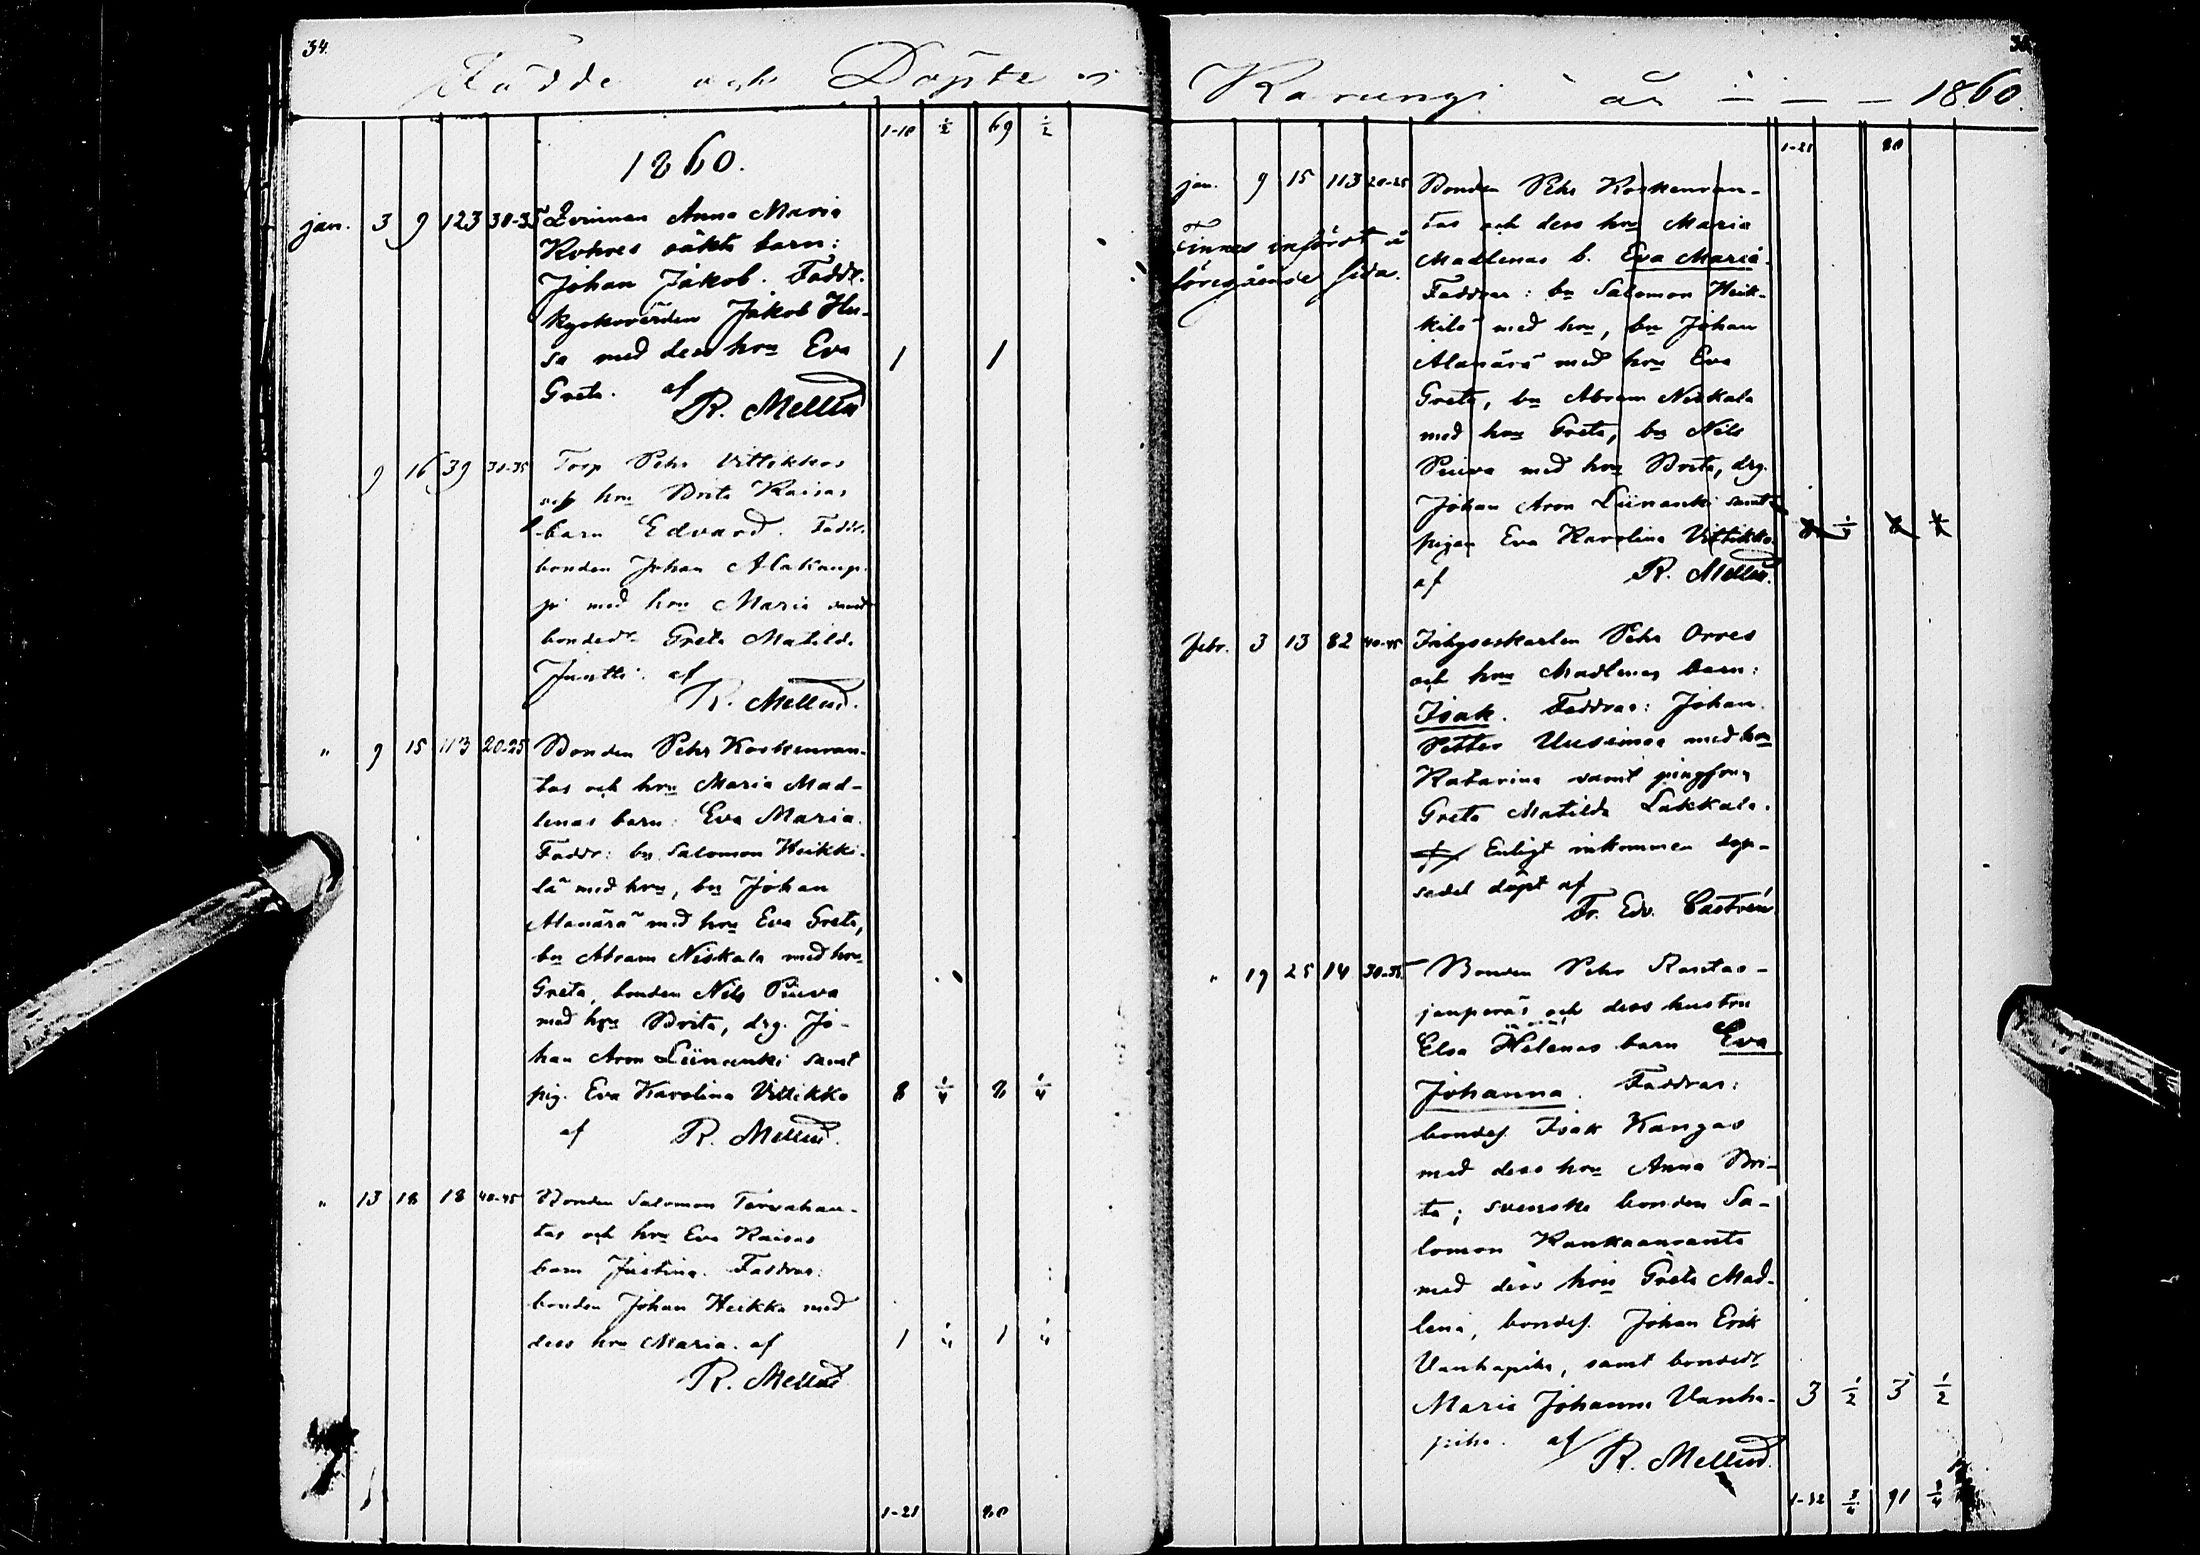 34.
Födde och Döpte i
1-10 ½ 69 ½
1860.
jan. 3 9 123 30-35 Qvinnan Anna Maria
Kohres oäkta barn:
Johan Jakob. Faddr.
kyrkovärden Jakob Hu-
sa med dess hru Eva
Greta. af 1 1
R. Mellin
9 16 39 30-35 Torp Pehr Vittikkos
och hru Brita Kaisas
barn Edvard. Faddr.
bonden Johan Alakaup-
pi med hru Maria samt
bondedr Greta Matilda
Juntti. af
R. Mellin.
" 9 15 113 20-25 Bonden Pehr Koskenran-
tas och hru Maria Mad-
lenas barn: Eva Maria.
Faddr: bn Salomon Heikki-
lä med hru, bn Johan
Alanärä med hru Eva Greta,
bn Abram Niskala med hru
Greta, bonden Nils Püwa
med hru Brita, drg. Jo-
han Aron Liinanki samt
pig. Eva Karolina Vittikko 8 ¼ 8 ¼
af R. Mellin.
" 13 18 18 40-45 Bonden Salomon Tervahau-
tas och hru Eva Kaisas
barn Justina. Faddrar:
bonden Johan Heikka med
dess hru Maria. af 1 ¼ 1 ¼
R. Mellin
1-21 80
35.
Karungi år — — — 1860.
1-21 80
jan. 9 15 113 20-25 Bonden Pehr Koskenran-
tas och dess hru Maria
Finnes infördt å
föregående sida.
Madlenas b. Eva Maria.
Faddrar: bn Salomon Heik-
kilä med hru, bn Johan
Alanärä med hru Eva
Greta, bn Abram Niskala
med hru Greta, bn Nils
Püwa med hru Brita, drg.
Johan Aron Liinanki samt
pigan Eva Karolina Vittikko. 8 ¼ 8 ¼
af R. Mellin.
febr. 3 13 82 40-45 Inhyseskarlen Pehr Orres
och hru Madlenas barn:
Isak. Faddrar: Johan
Petter Uusimaa med hru
Katarina samt pigan
Greta Matilda Lakkala.
af Enligt inkommen dop-
sedel döpt af
Fr. Edv. Castrén
" 19 25 14 30-35 Bonden Pehr Rantas-
janperäs och dess hustru
Elsa Helenas barn Eva
Johanna. Faddrar:
bondes. Isak Kangas
med dess hru Anna Bri-
ta; svenske bonden Sa-
lomon Kankaanranta
med dess hru Greta Mad-
lena, bondes. Johan Erik
Vanhapiha, samt bondedr
Maria Johanna Vanha- 3 ½ 3 ½
piha. af
R. Mellin.
1-32 ¾ 91 ¾